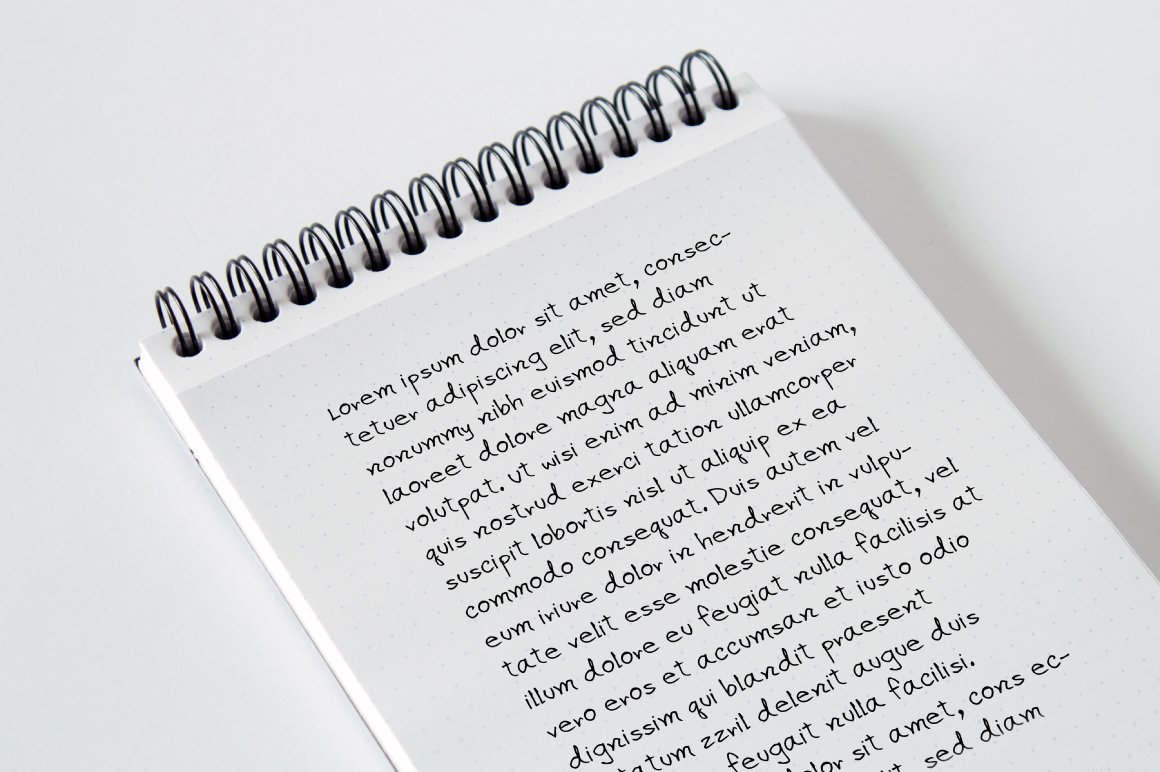 Lorem ipsum dolor sit amet, consec-
tetuer adipiscing elit, sed diam
nonummy nibh euismod tincidunt ut
laoreet dolore magna aliquam erat
volutpat. Ut wisi enim ad minim veniam,
quis nostrud exerci tation ullamcorper
suscipit lobortis nisl ut aliquip ex ea
commodo consequat. Duis autem vel
eum iriure dolor in hendrerit in vulpu-
tate velit esse molestie consequat, vel
illum dolore eu feugiat nulla facilisis at
vero eros et accumsan et iusto odio
dignissim qui blandit praesent
tatum zzril delenit augue duis
feugait nulla facilisi.
dolor sit amet, cons ec-
sed diam